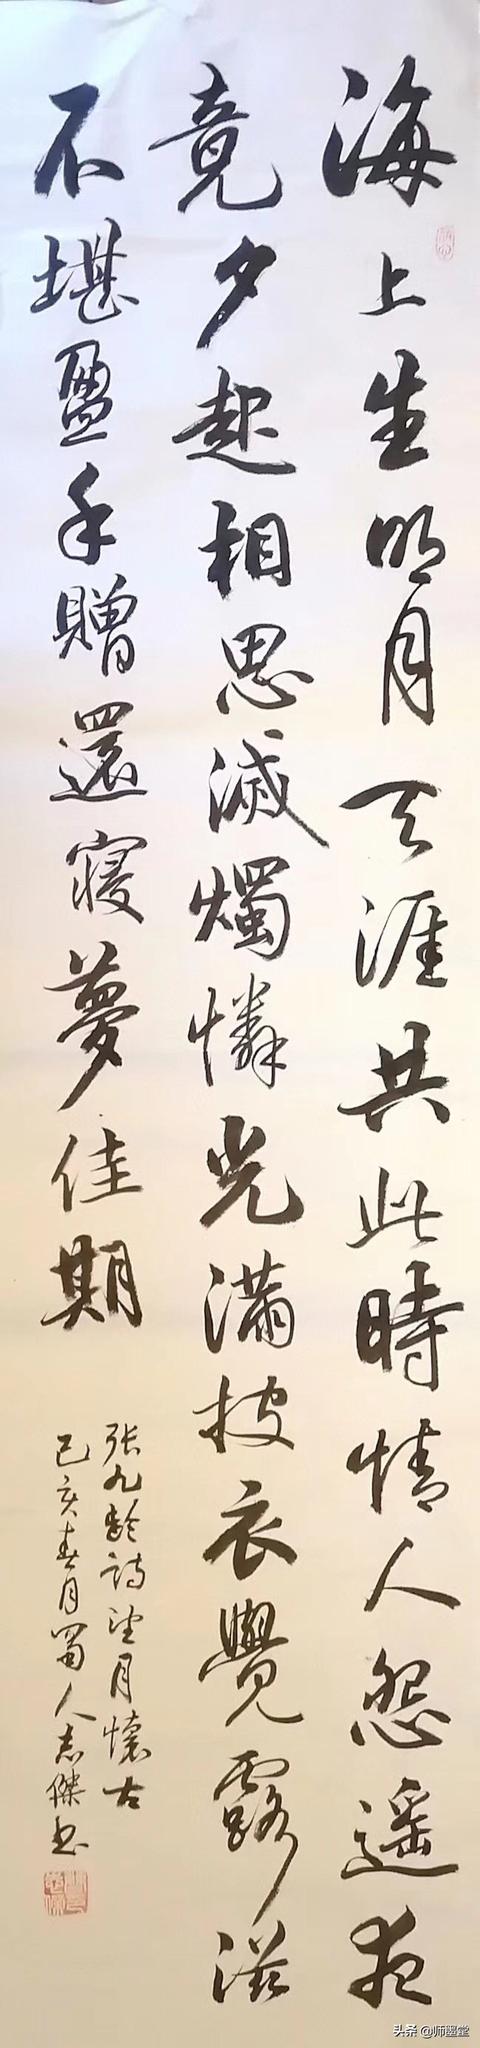 海上生明月天涯共此時情人怨遥夜
竟夕起相思滅燭憐光滿披衣覺露滋
不堪盈手贈還寢夢佳期
張九齡詩望月懷古
己亥春月蜀人志傑书
头条 @师墨堂